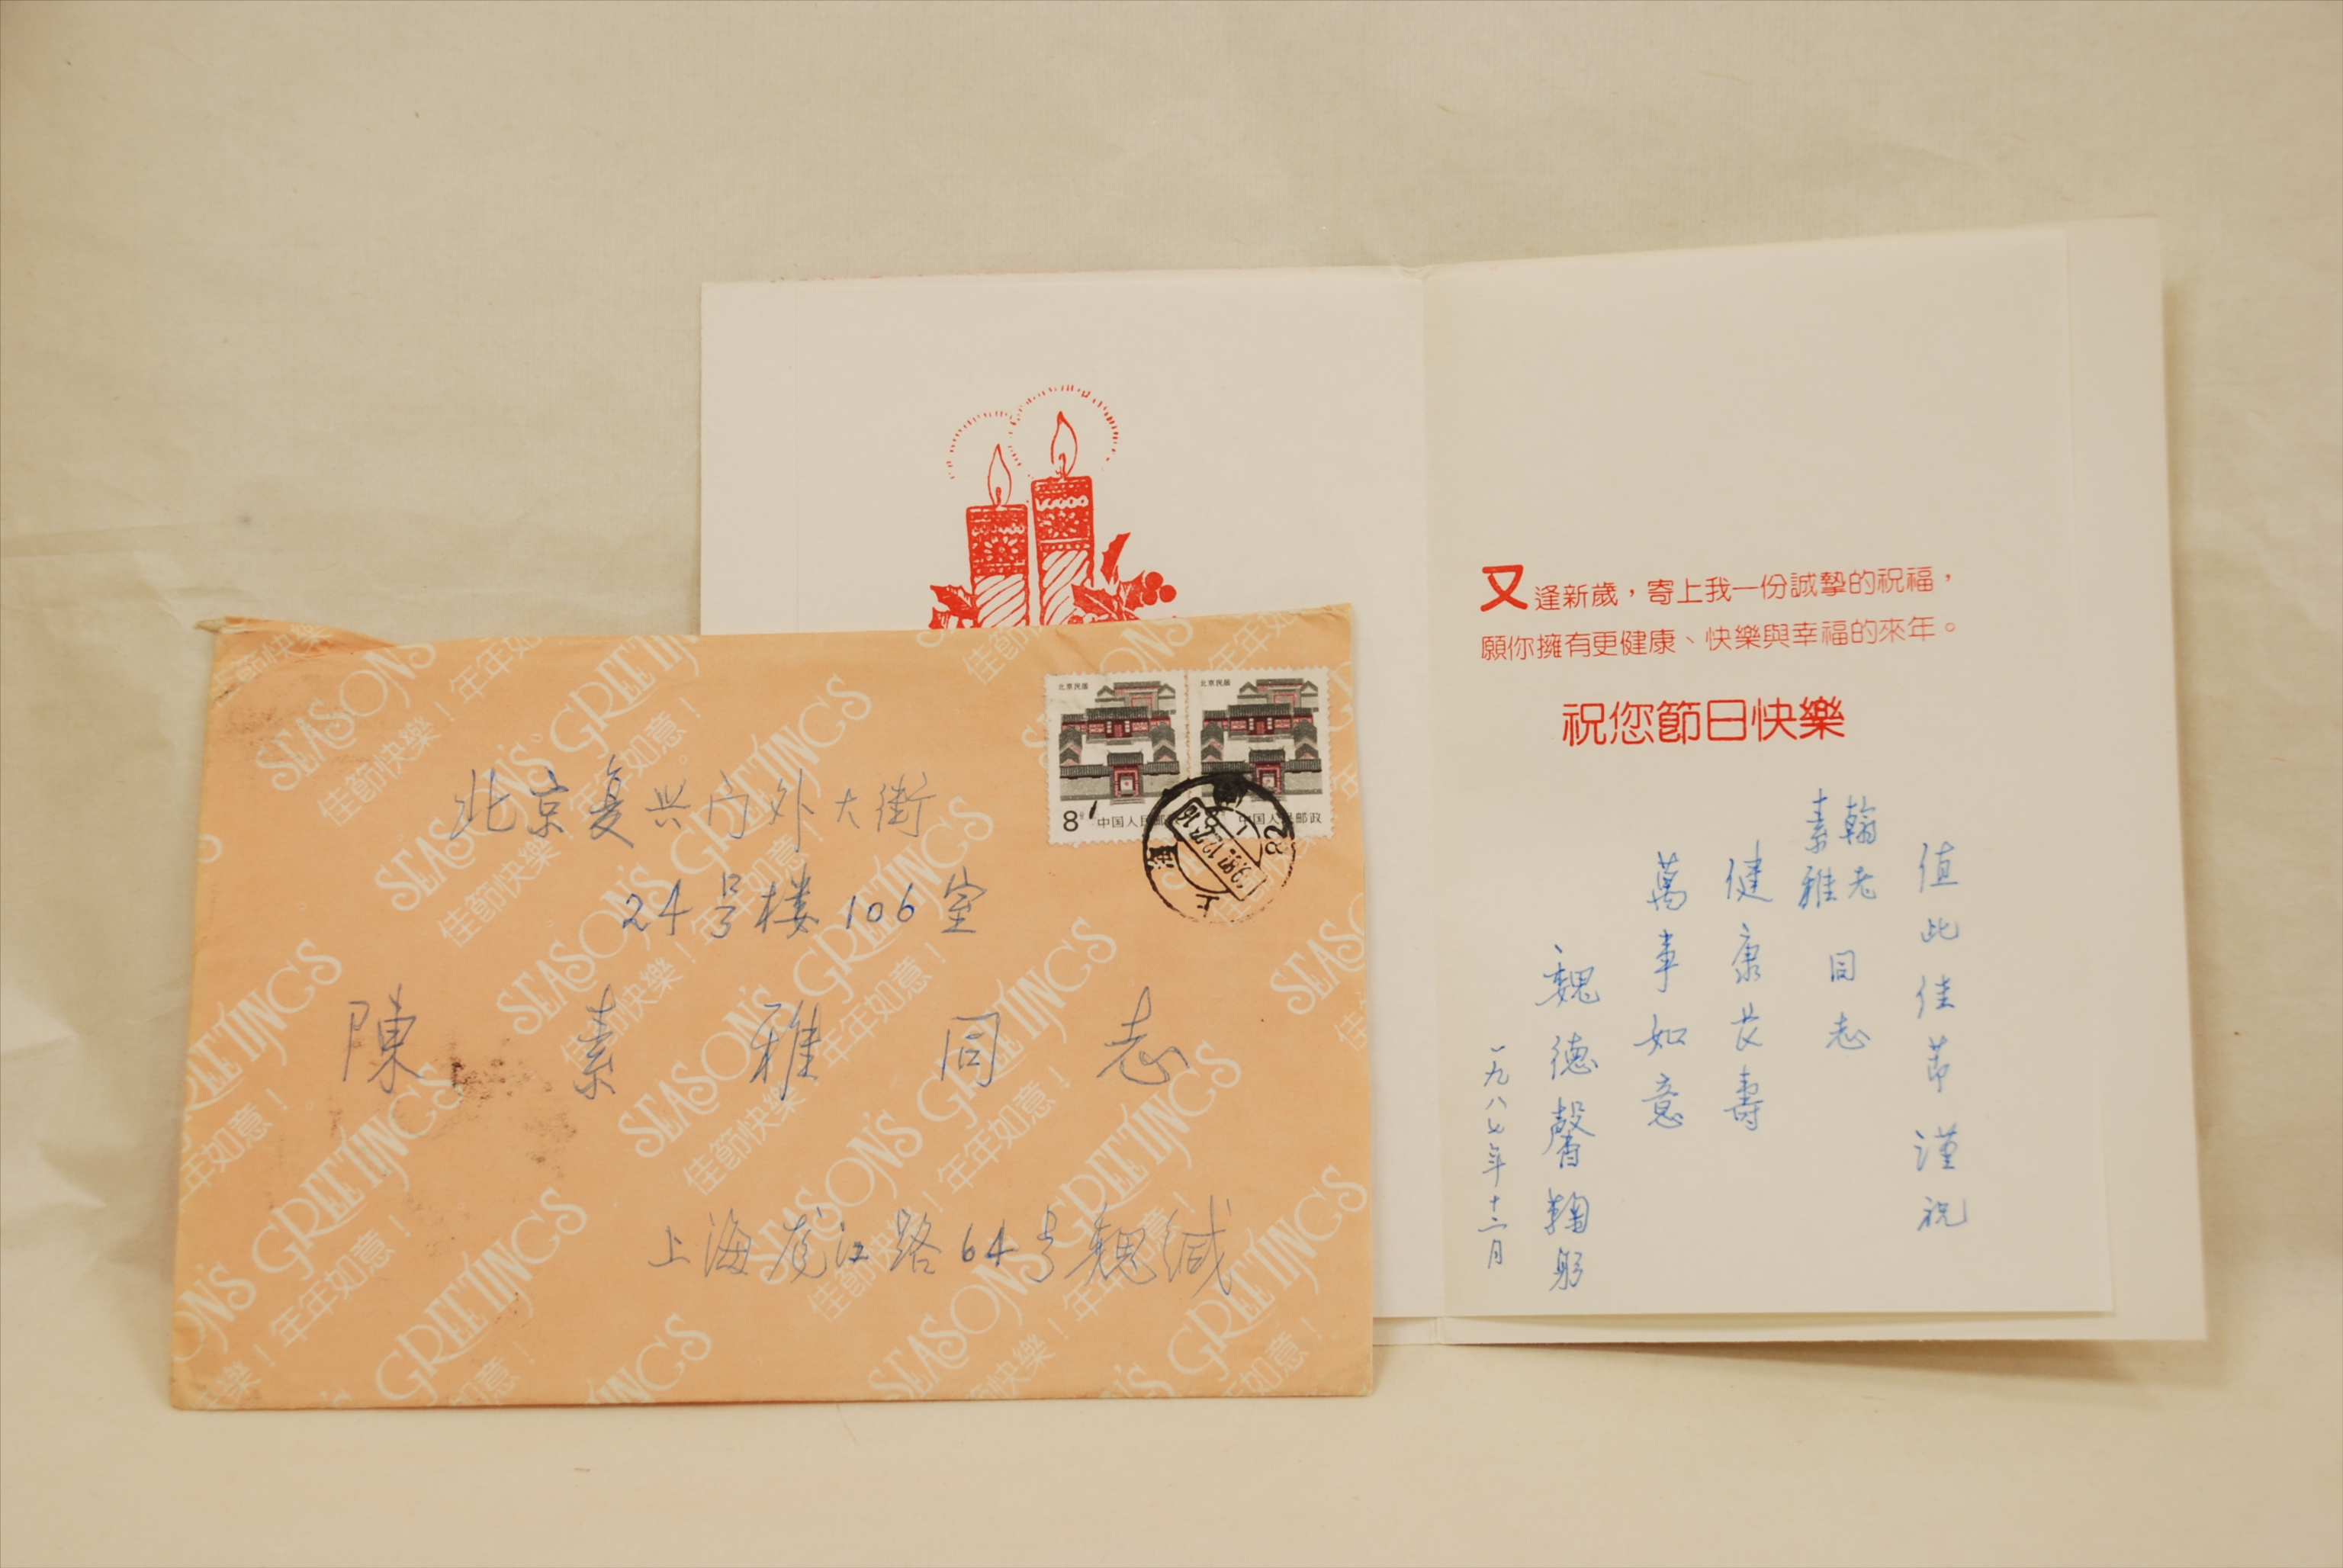 北京复兴门外大街
24号楼106室
陳素雅同志
上海庞江路64号魏缄
北京民居
北京民居
8分 中国人民邮政
中国人民邮政
上海
1987.12.27.16
SEASON'S GREETINGS
佳節快樂！年年如意！
又逢新歲，寄上我一份誠摯的祝福，
願你擁有更健康、快樂與幸福的來年。
祝您節日快樂
值此佳节谨祝
翰老
素雅 同志
健康長壽
萬事如意
魏德馨鞠躬
一九八七年十二月